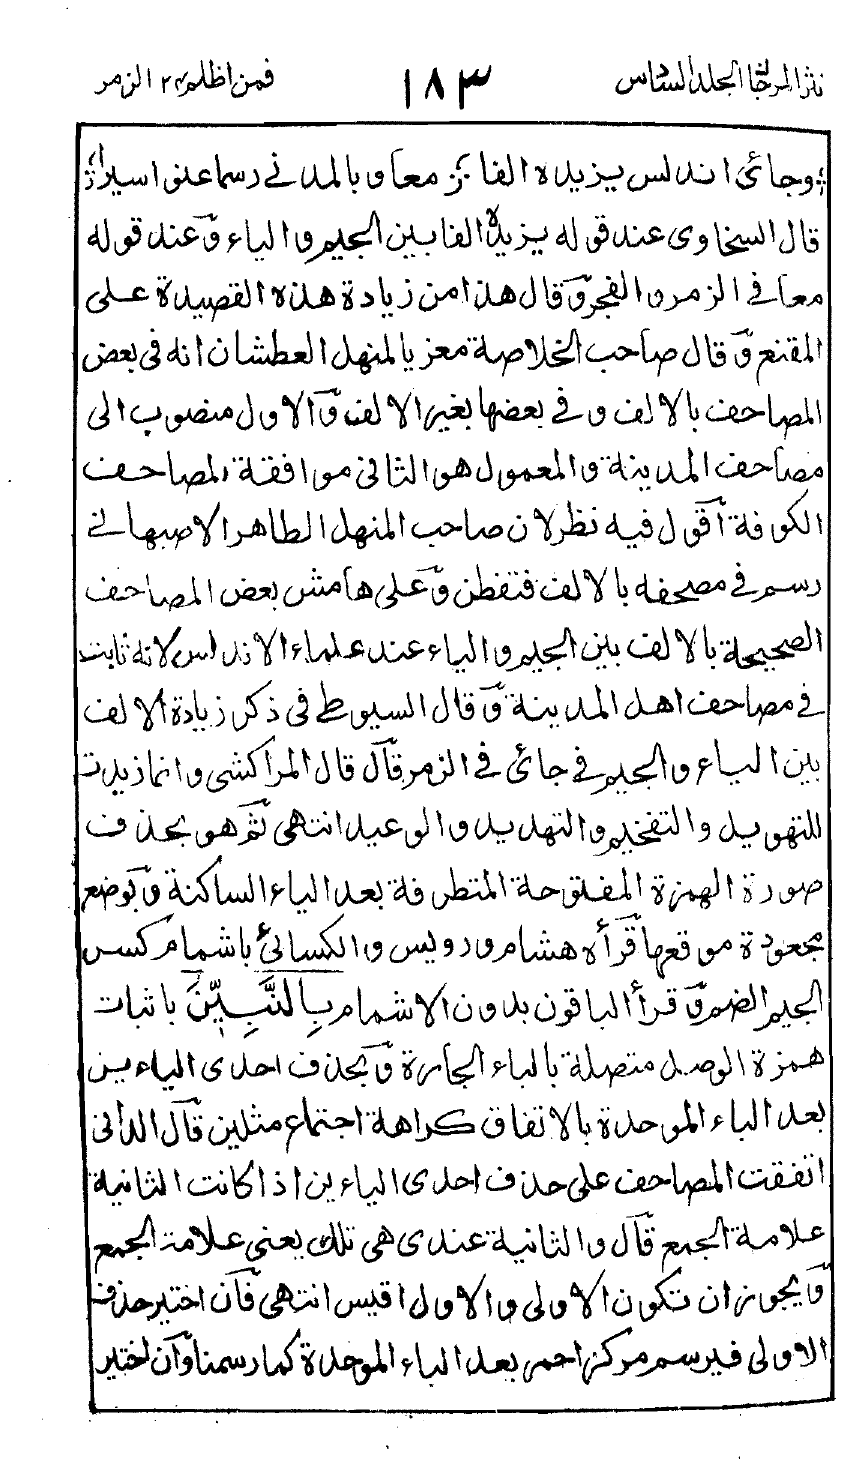 نثر المرجان الجلد السادس ١٨٣ فمن اظلم ٢٤ الزمر
وجائ اندلس يزيده الفا معا وبالمدني رسما عنوا سيرا
قال السخاوى عند قوله يزيده الفا بين الجيم والياء وعند قوله
معا في الزمر والفجر وقال هذا من زيادة هذه القصيدة على
المقنع وقال صاحب الخلاصة معزيا لمنهل العطشان انه فى بعض
المصاحف بالالف وفي بعضها بغير الالف والاول منصوب الى
مصاحف المدينة والمعمول هو الثانى موافقة لمصاحف
الكوفة أقول فيه نظر لان صاحب المنهل الطاهر الاصبهاني
رسم في مصحفه بالالف فتفطن وعلى هامش بعض المصاحف
الصحيحة بالالف بين الجيم والياء عند علماء الاندلس لانه ثابت
في مصاحف اهل المدينة وقال السيوطي فى ذكر زيادة الالف
بين الياء والجيم في جائ في الزمر قال قال المراكشى وانما زيدت
للتهويل والتفخيم والتهديد والوعيد انتهى ثم هو بحذف
صورة الهمزة المفتوحة المتطرفة بعد الياء الساكنة وبوضع
مجعودة موقعها قرأه هشام ورويس والكسائئ باشمام كسر
الجيم الضم وقرأ الباقون بدون الاشمام بِالنَّبِيّٖنَ باثبات
همزة الوصل متصلة بالباء الجارة وبحذف احدى الياءين
بعد الباء الموحدة بالاتفاق كراهة اجتماع مثلين قال الدانى
اتفقت المصاحف على حذف احدى الياءين اذا كانت الثانية
علامة الجمع قال والثانية عندى هى تلك يعنى علامة الجمع
ويجوز ان تكون الاولى والاول اقيس انتهى فان اختير حذف
الاولى فيرسم مركز احمر بعد الباء الموحدة كما رسمنا وان اختير